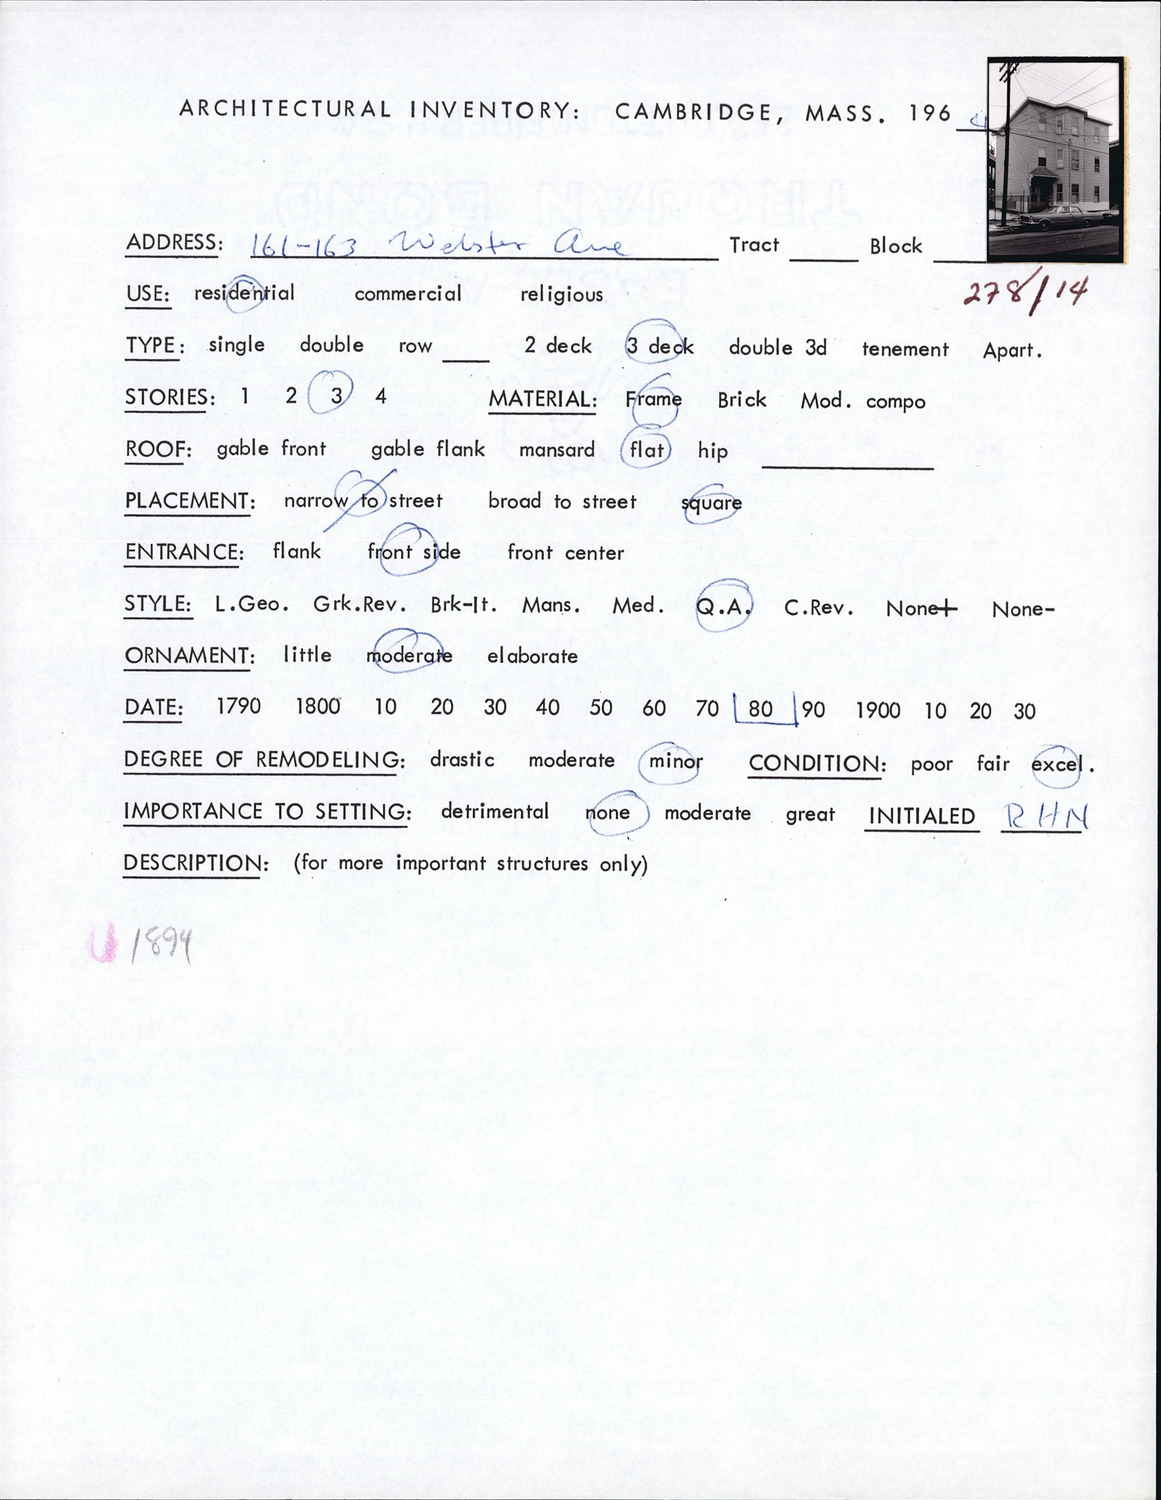 ARCHITECTURAL INVENTORY: CAMBRIDGE, MASS. 196
ADDRESS: 161-163 Webster Ave Tract ____ Block ____
278/14
USE: residential commercial religious
TYPE: single double row ____ 2 deck 3 deck double 3d tenement Apart.
STORIES: 1 2 3 4 MATERIAL: Frame Brick Mod. compo
ROOF: gable front gable flank mansard flat hip ____
PLACEMENT: narrow to street broad to street square
ENTRANCE: flank front side front center
STYLE: L.Geo. Grk.Rev. Brk-It. Mans. Med. Q.A. C.Rev. None+ None-
ORNAMENT: little moderate elaborate
DATE: 1790 1800 10 20 30 40 50 60 70 80 90 1900 10 20 30
DEGREE OF REMODELING: drastic moderate minor CONDITION: poor fair excel.
IMPORTANCE TO SETTING: detrimental none moderate great INITIALED RHN
DESCRIPTION: (for more important structures only)
U 1894